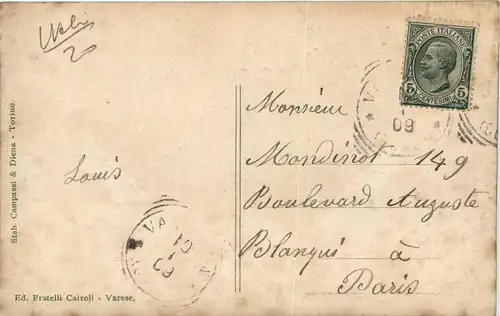 POSTE ITALIANE
5 5
CENTESIMI
09
VA
10
09
Monsieur
Mondinot 149
Boulevard Auguste
Blanqui à
Paris
Louis
Stab. Campassi & Diena - Torino.
Ed. Fratelli Cairoli - Varese,